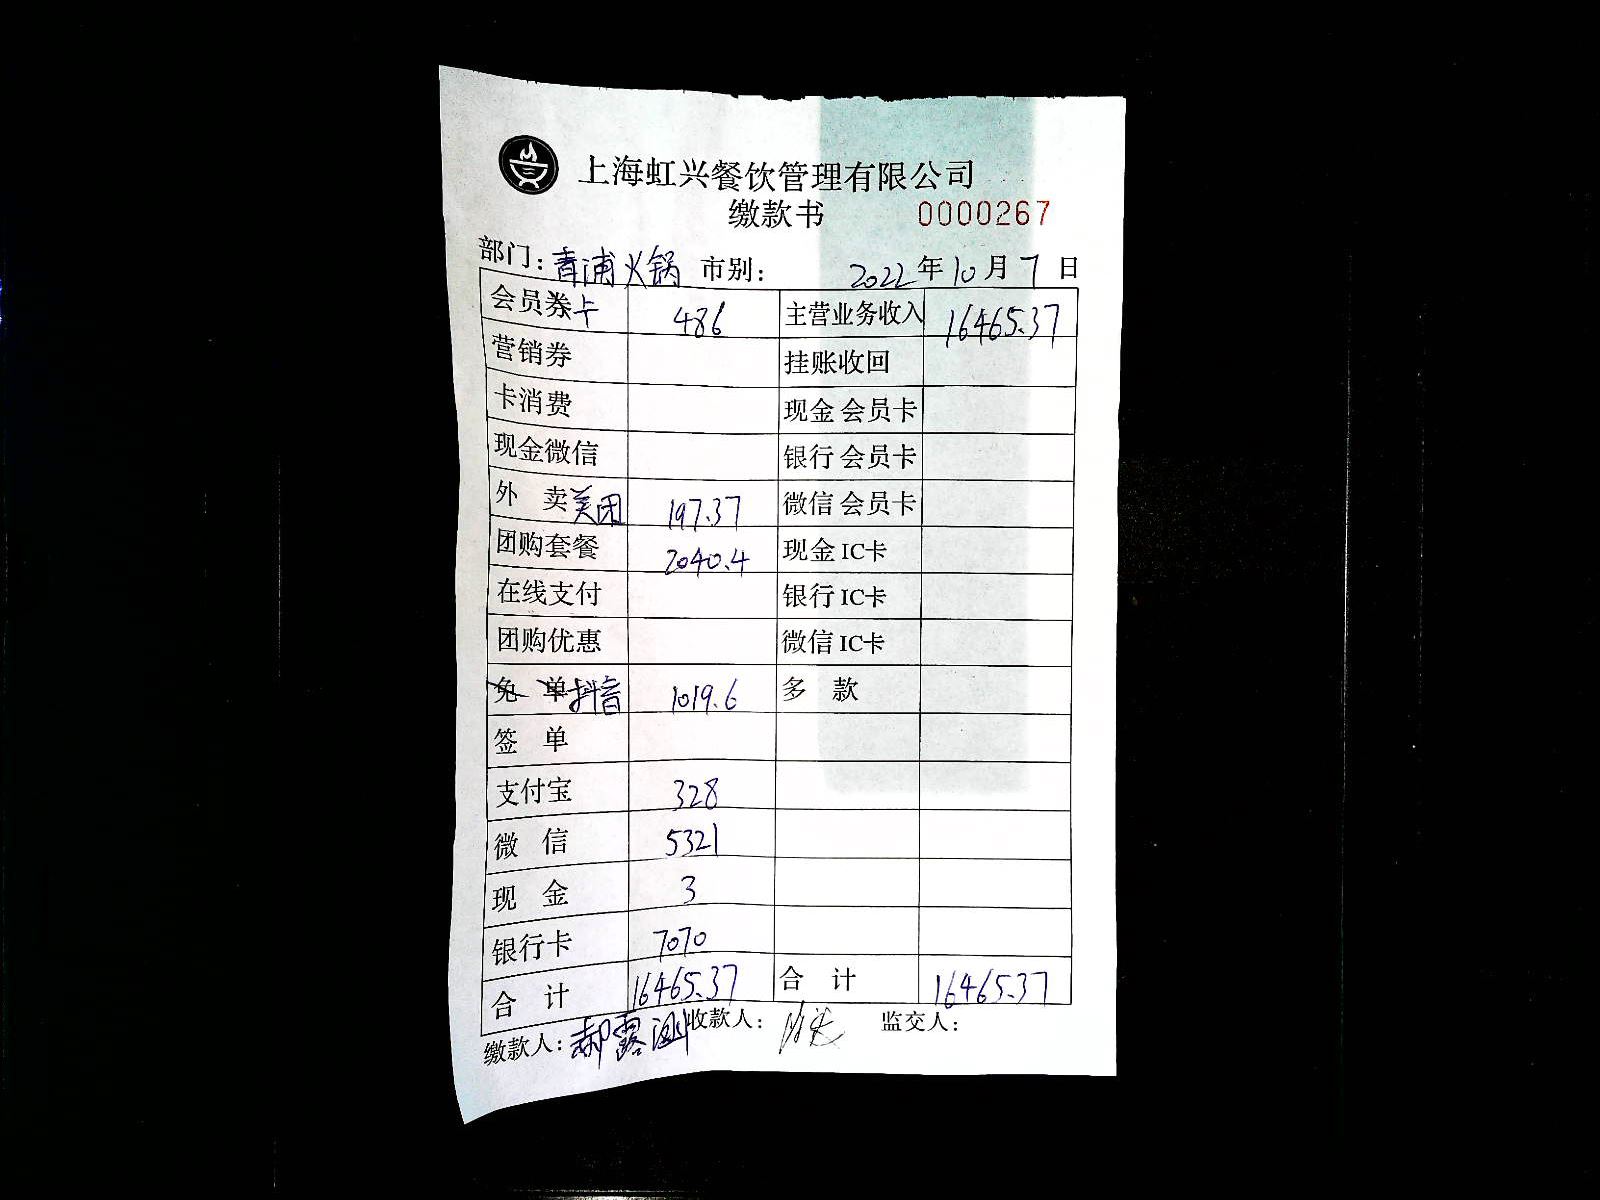 上海虹兴餐饮管理有限公司
缴款书 0000267
部门：青浦火锅 市别： 2022年10月7日
会员券卡 486 主营业务收入 16465.37
营销券 挂账收回
卡消费 现金 会员卡
现金微信 银行 会员卡
外 卖美团 197.37 微信 会员卡
团购套餐 2040.4 现金 IC卡
在线支付 银行 IC卡
团购优惠 微信 IC卡
免 单抖音 1019.6 多 款
签 单
支付宝 328
微 信 5321
现 金 3
银行卡 7070
合 计 16465.37 合 计 16465.37
缴款人：郝露 收款人： 监交人：